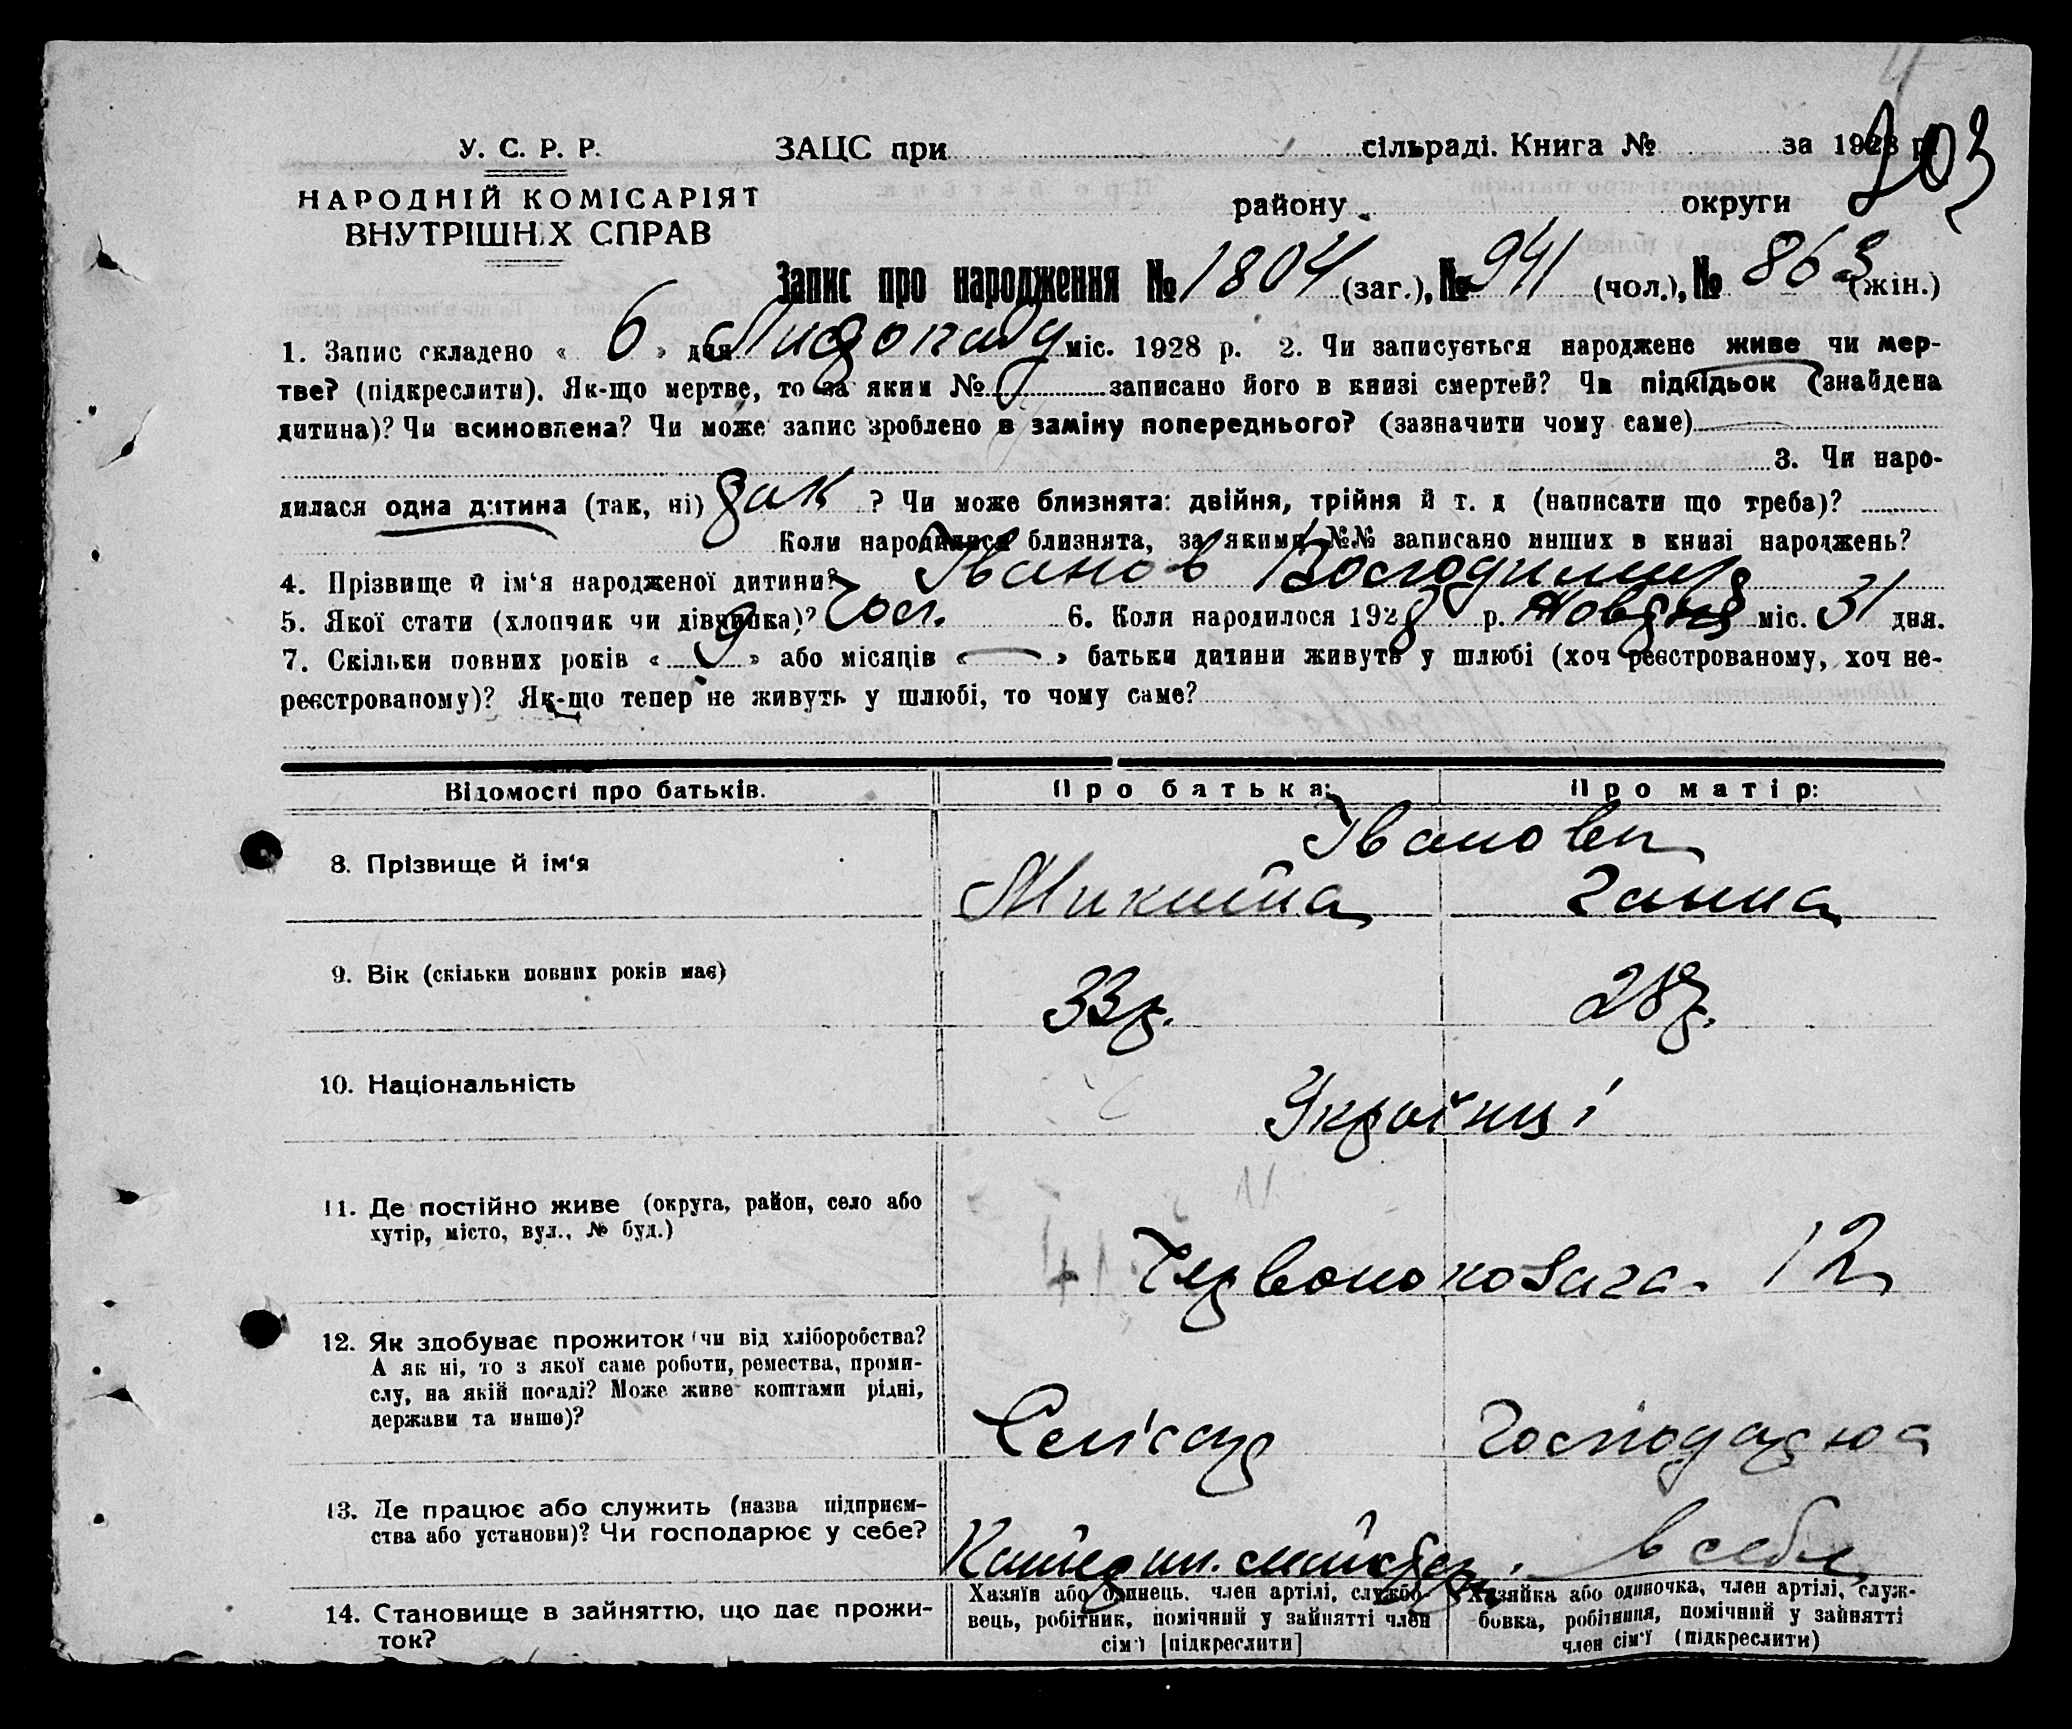 203
У. С. Р. Р. ЗАЦС при сільраді. Книга № за 1928 р.
НАРОДНІЙ КОМІСАРІЯТ району округи
ВНУТРІШНІХ СПРАВ
Запис про народження № 1804 (заг.), № 941 (чол.), № 863 (жін.)
1. Запис складено « 6 » дня Листопаду міс. 1928 р. 2. Чи записується народжене живе чи мер-
тве? (підкреслити). Як-що мертве, то за яким № записано його в книзі смертей? Чи підкідьок (знайдена
дитина)? Чи всиновлена? Чи може запис зроблено в заміну попереднього? (зазначити чому саме)
3. Чи наро-
дилася одна дитина (так, ні) так ? Чи може близнята: двійня, трійня й т. д (написати що треба)?
Коли народилися близнята, за якими №№ записано инших в книзі народжень?
4. Прізвище й ім‘я народженої дитини? Іванов Володимир
5. Якої стати (хлопчик чи дівчинка)? Чол. 6. Коли народилося 1928 р. Жовтня міс. 31 дня.
7. Скільки повних років « 9 » або місяців « — » батьки дитини живуть у шлюбі (хоч реєстрованому, хоч не-
реєстрованому)? Як-що тепер не живуть у шлюбі, то чому саме?
Відомості про батьків. Про батька: Про матір:
Іванови
8. Прізвище й ім‘я Микита Ганна
9. Вік (скільки повних років має) 33 р. 28 р.
10. Національність Українці
11. Де постійно живе (округа, район, село або
хутір, місто, вул., № буд.) Червонокозача 12
12. Як здобуває прожиток (чи від хліборобства?
А як ні, то з якої саме роботи, ремества, проми-
слу, на якій посаді? Може живе коштами рідні,
держави та инше)? Слюсар Господарює
13. Де працює або служить (назва підприєм-
ства або установи)? Чи господарює у себе? в себе
14. Становище в зайняттю, що дає прожи-
ток?
Хазяїн або одинець, член артілі, службо-
вець, робітник, помічний у зайнятті член
сім‘ї [підкреслити]
Хазяйка або одиночка, член артілі, служ-
бовка, робітниця, помічний у зайнятті
член сім‘ї (підкреслити)